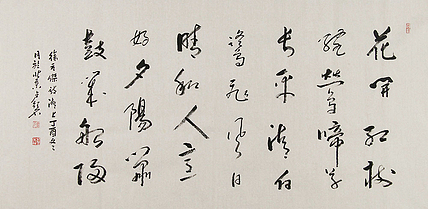 花開紅樹
亂鶯啼草
長平湖白
鷺飛風日
晴和人意
好夕陽簫
鼓幾船歸
徐元傑詩湖上丁酉冬
月於